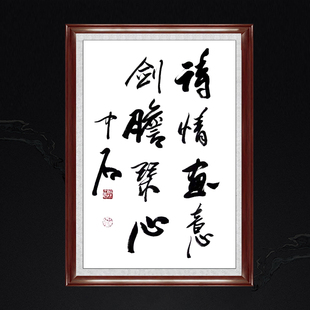 诗情画意
剑胆琴心
中石